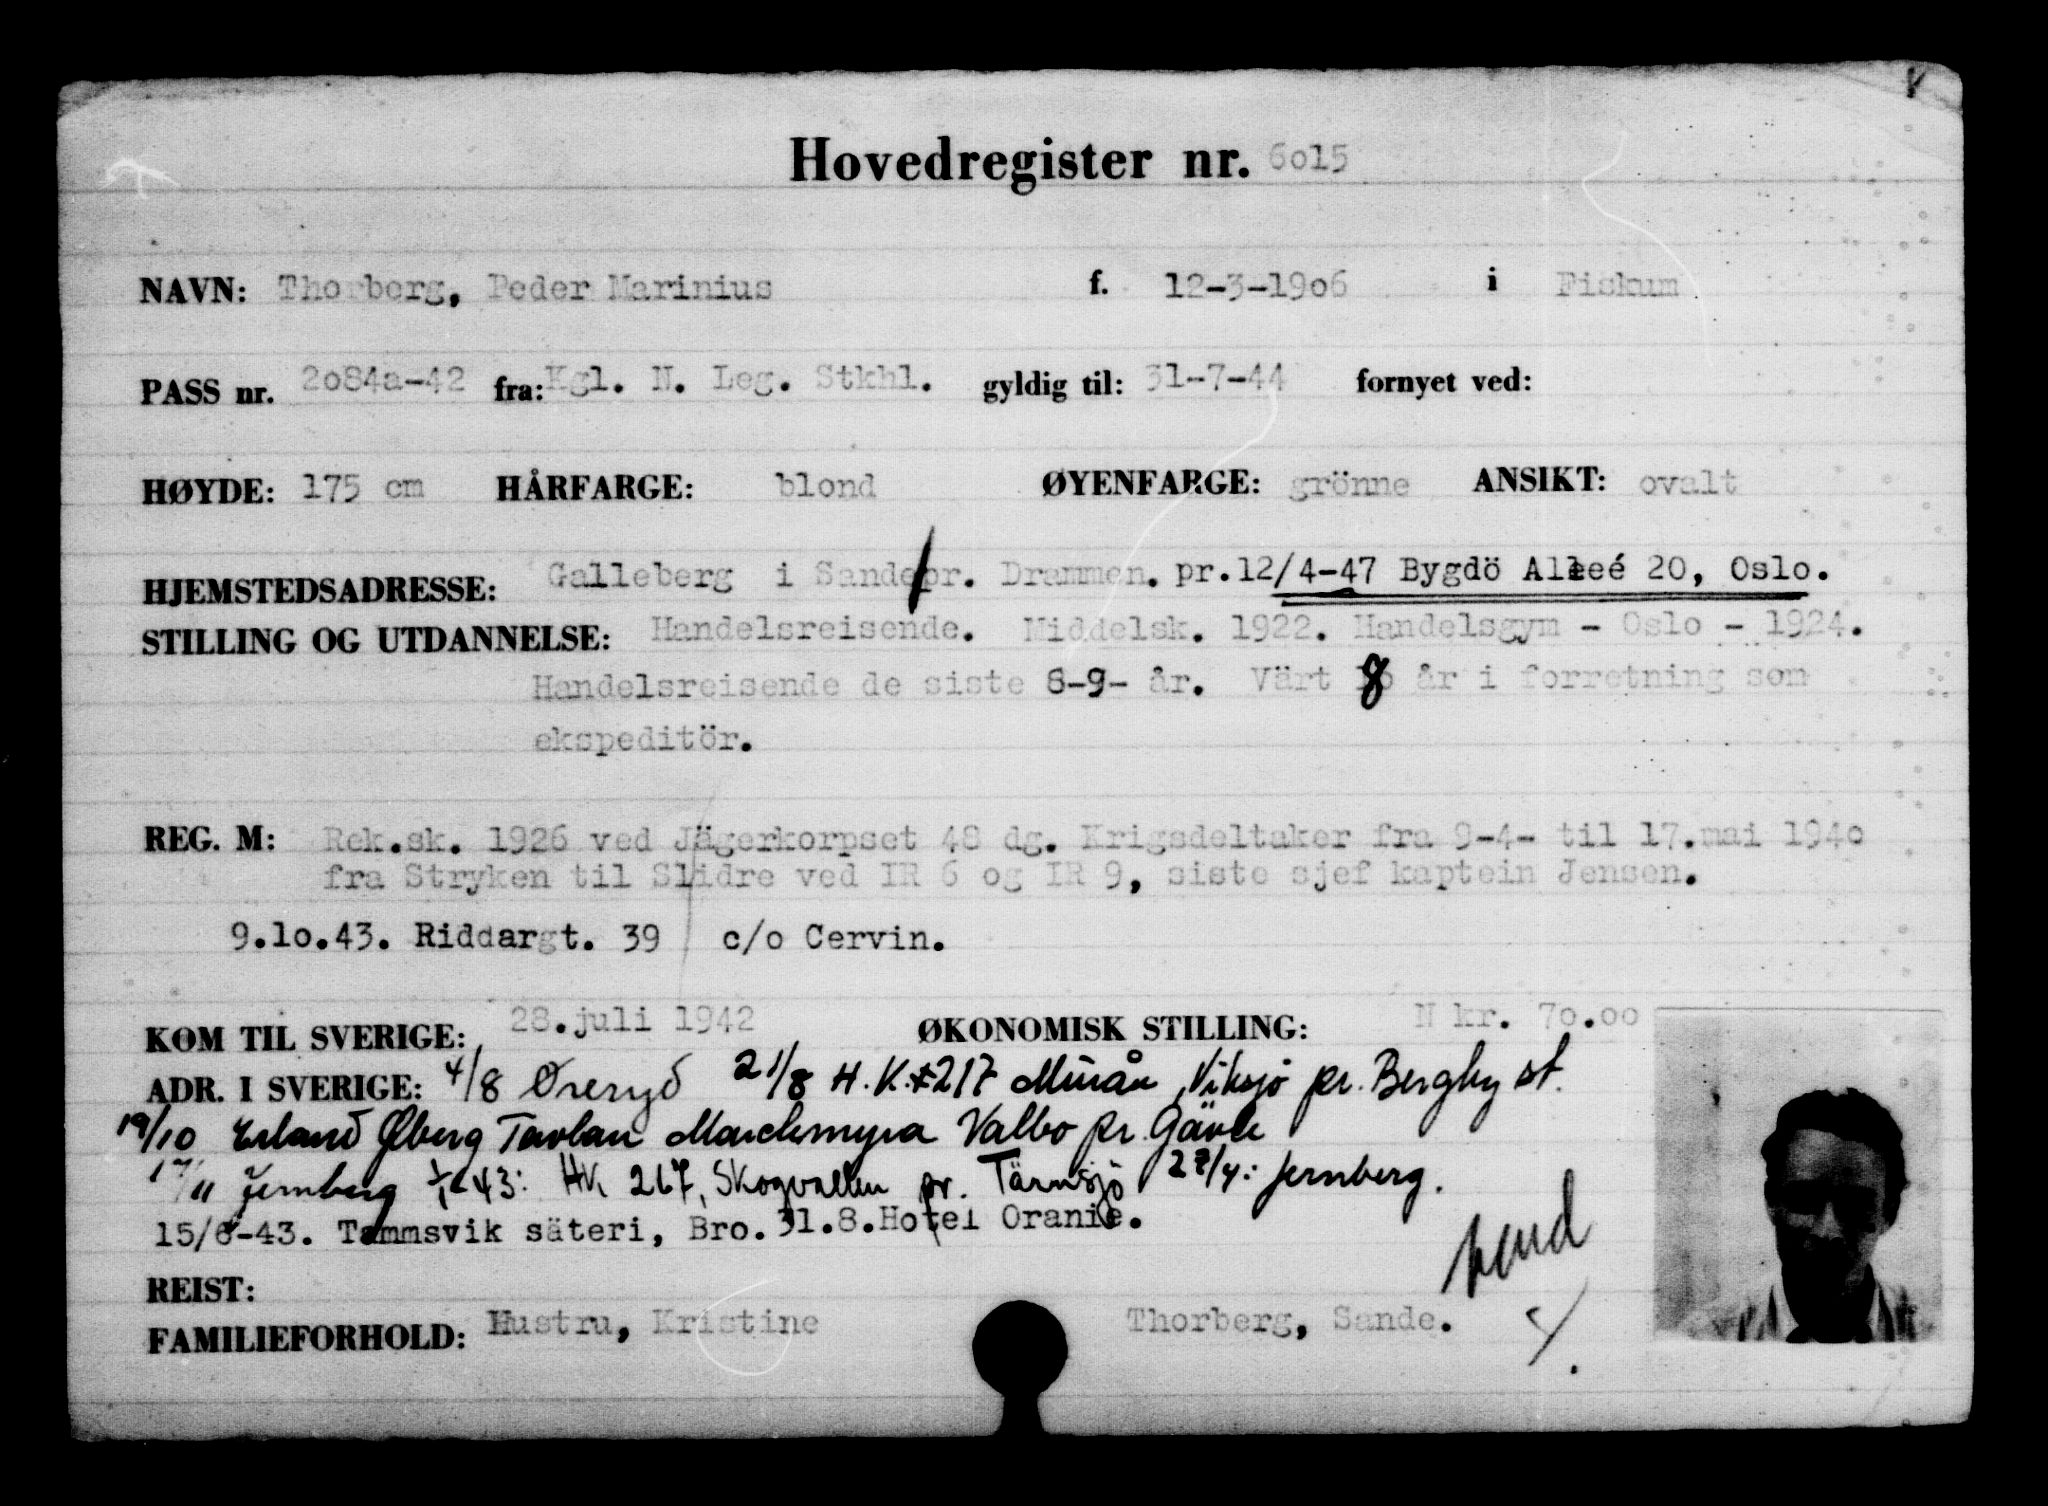 Hovedregister nr. 6o15
NAVN: Thorberg, Peder Marinius f. 12-3-19o6 i Fiskum
PASS nr. 2o84a-42 fra: Kgl. N. Leg. Stkhl. gyldig til: 31-7-44 fornyet ved:
HØYDE: 175 cm HÅRFARGE: blond ØYENFARGE: grönne ANSIKT: ovalt
HJEMSTEDSADRESSE: Galleberg i Sande pr. Drammen. pr.12/4-47 Bygdö Alleé 20, Oslo.
STILLING OG UTDANNELSE: Handelsreisende. Middelsk. 1922. Handelsgym - Oslo - 1924.
Handelsreisende de siste 8-9- år. Värt 8 år i forretning som
ekspeditör.
REG. M: Rek.sk. 1926 ved Jägerkorpset 48 dg. Krigsdeltaker fra 9-4- til 17.mai 194o
fra Stryken til Slidre ved IR 6 og IR 9, siste sjef kaptein Jensen.
9.1o.43. Riddargt. 39 c/o Cervin.
KOM TIL SVERIGE: 28.juli 1942 ØKONOMISK STILLING: N kr. 7o.oo
ADR. I SVERIGE: 4/8 Öreryd 21/8 H.K. 217 Viksjö pr. Bergby st.
19/10 Erland Øberg Tavlan Mackmyra Valbo pr. Gävle
Jernberg 43: HK 267, Skogvallen pr. Tärnsjö Jernberg.
15/6-43. Tammsvik säteri, Bro. 31.8.Hotel Oranie.
REIST:
FAMILIEFORHOLD: Hustru, Kristine Thorberg, Sande.